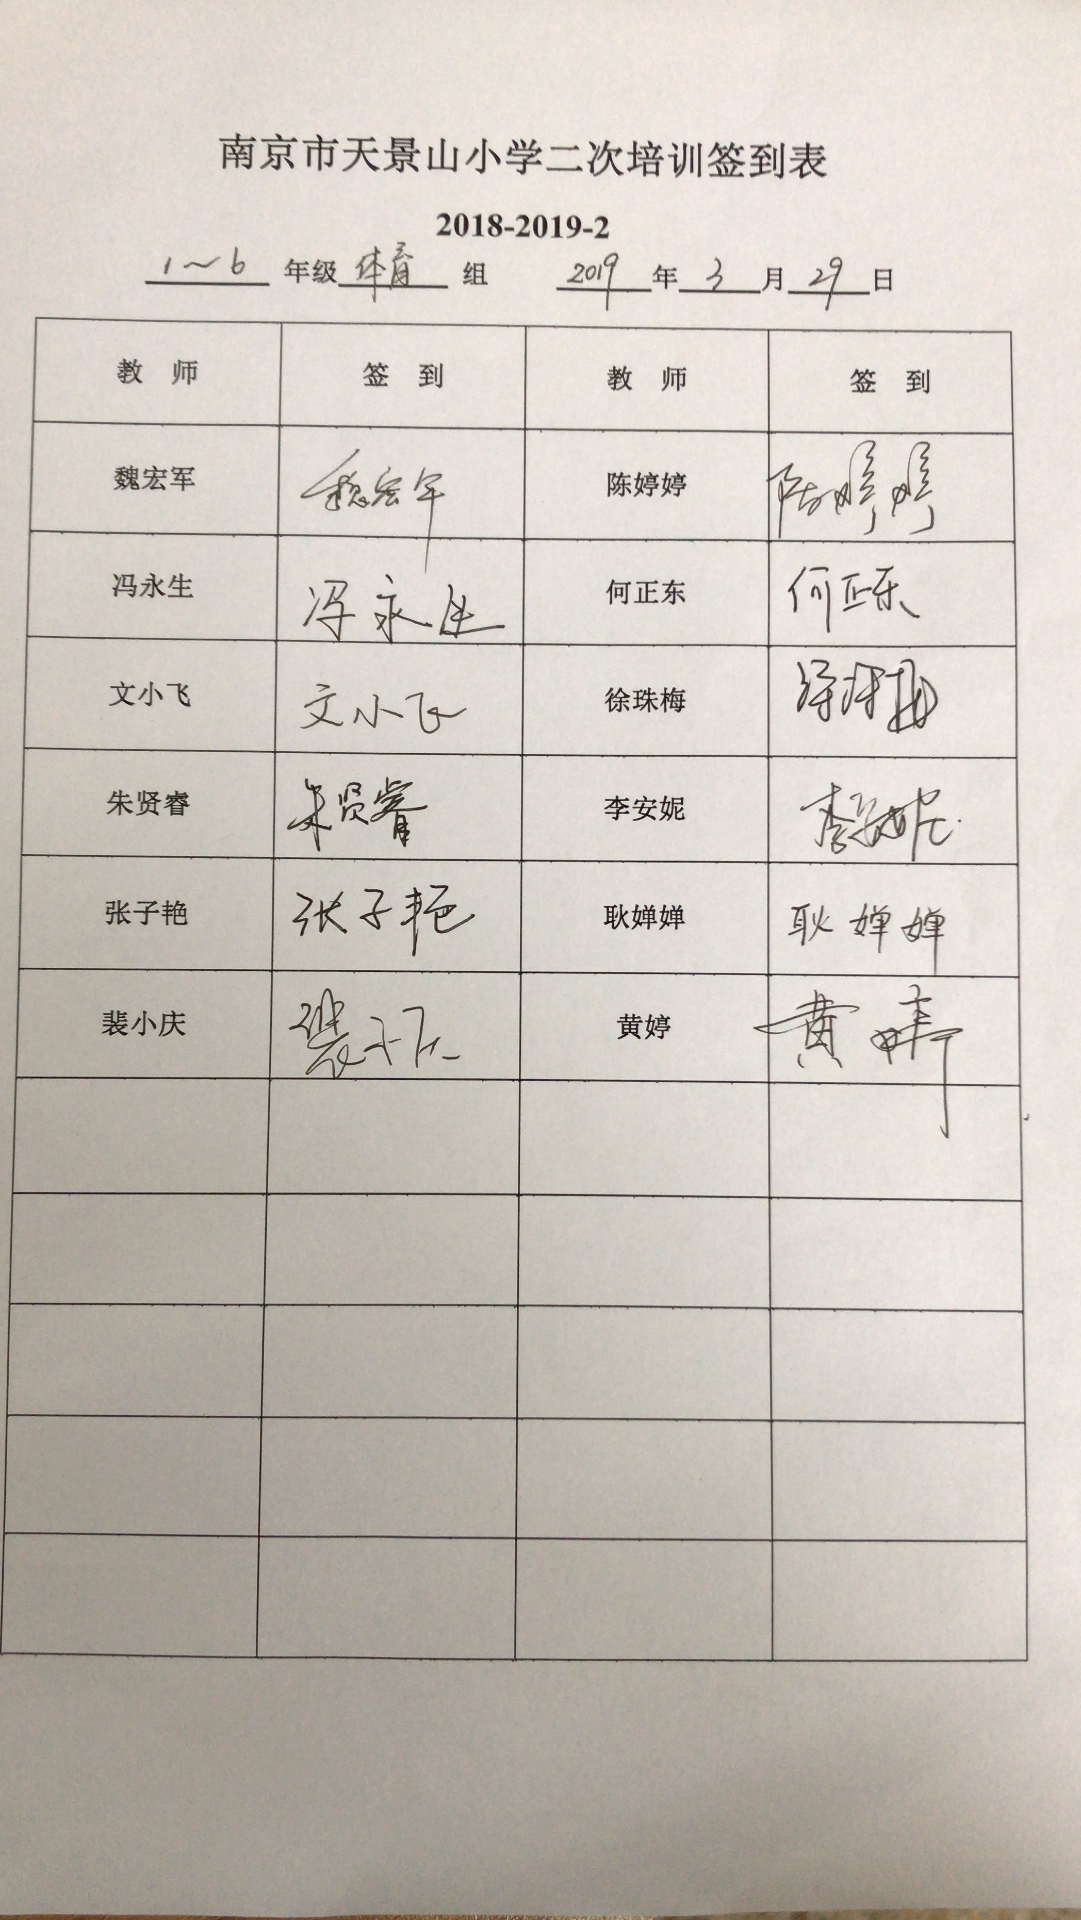 南京市天景山小学二次培训签到表
2018-2019-2
1~6 年级 体育 组 2019 年 3 月 29 日
教 师 签 到 教 师 签 到
魏宏军 魏宏军 陈婷婷 陈婷婷
冯永生 冯永生 何正东 何正东
文小飞 文小飞 徐珠梅 徐珠梅
朱贤睿 朱贤睿 李安妮 李安妮
张子艳 张子艳 耿婵婵 耿婵婵
裴小庆 裴小庆 黄婷 黄婷